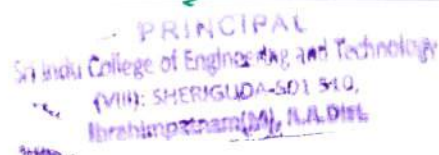 PRINCIPAL
Sri Indu College of Engineering and Technology
(VIII): SHERIGUDA-501 510,
Ibrahimpatnam(M), R.R.Dist.